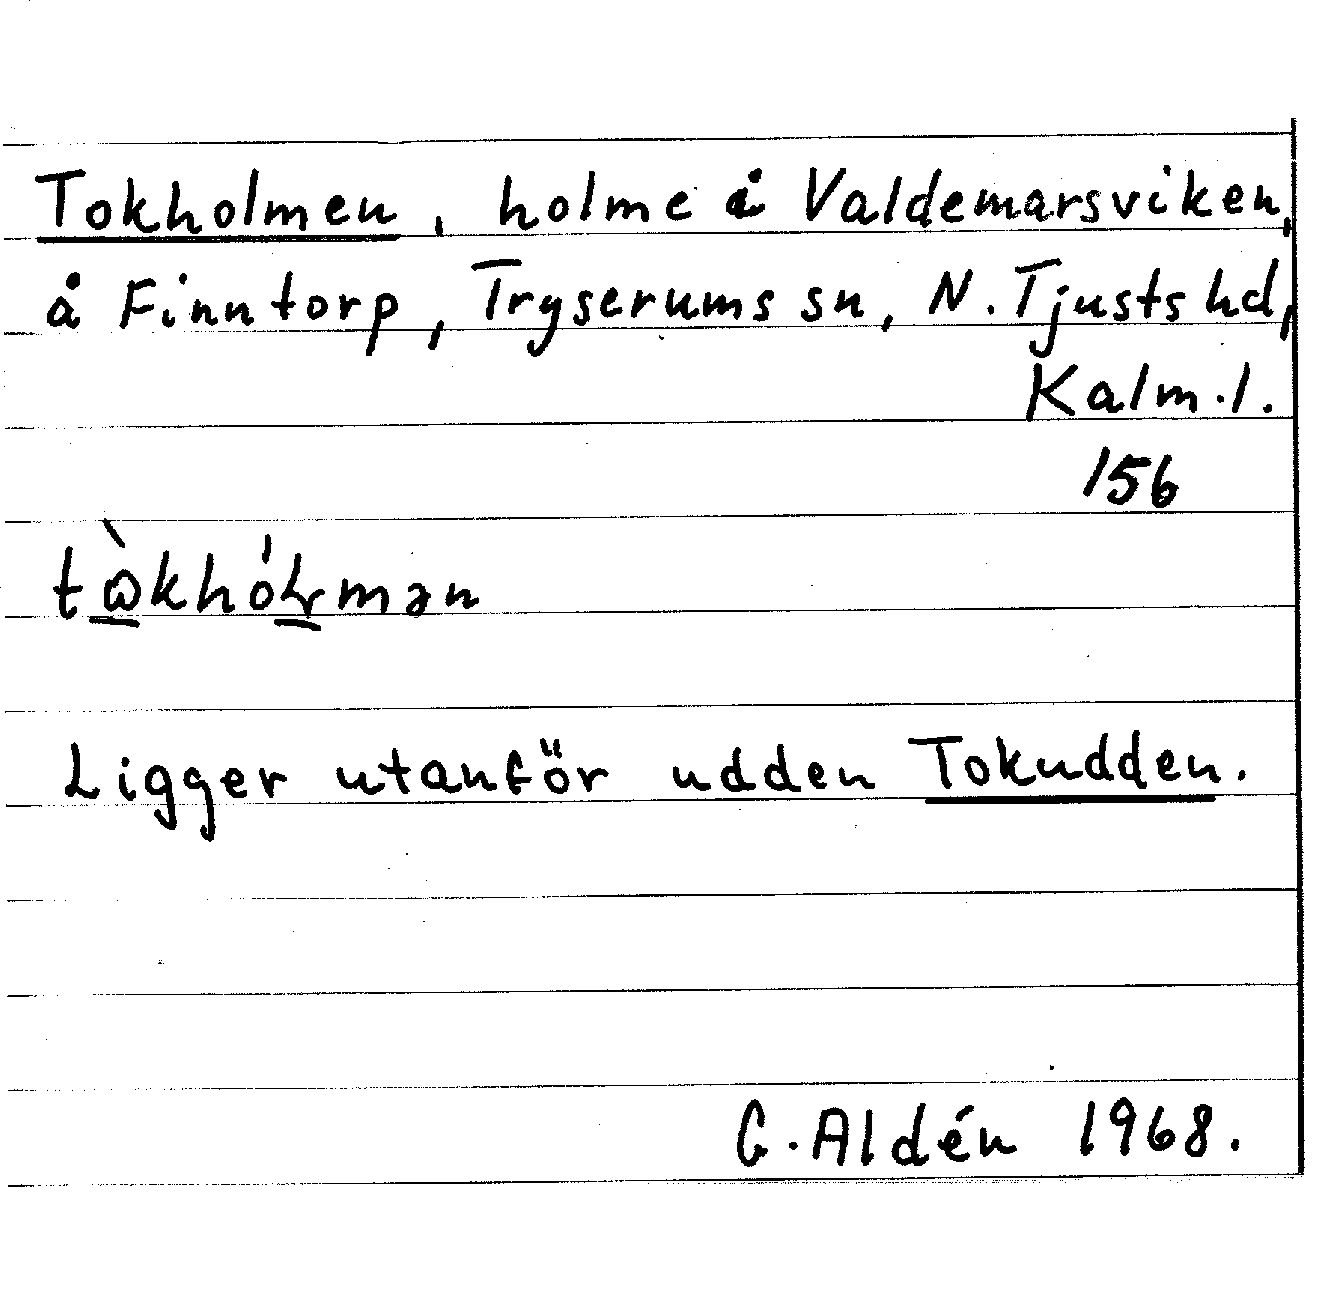 Tokholmen, holme å Valdemarsviken,
å Finntorp, Tryserums sn, N. Tjusts hd,
Kalm. l.
156
Ligger utanför udden Tokudden.
G. Aldén 1968.